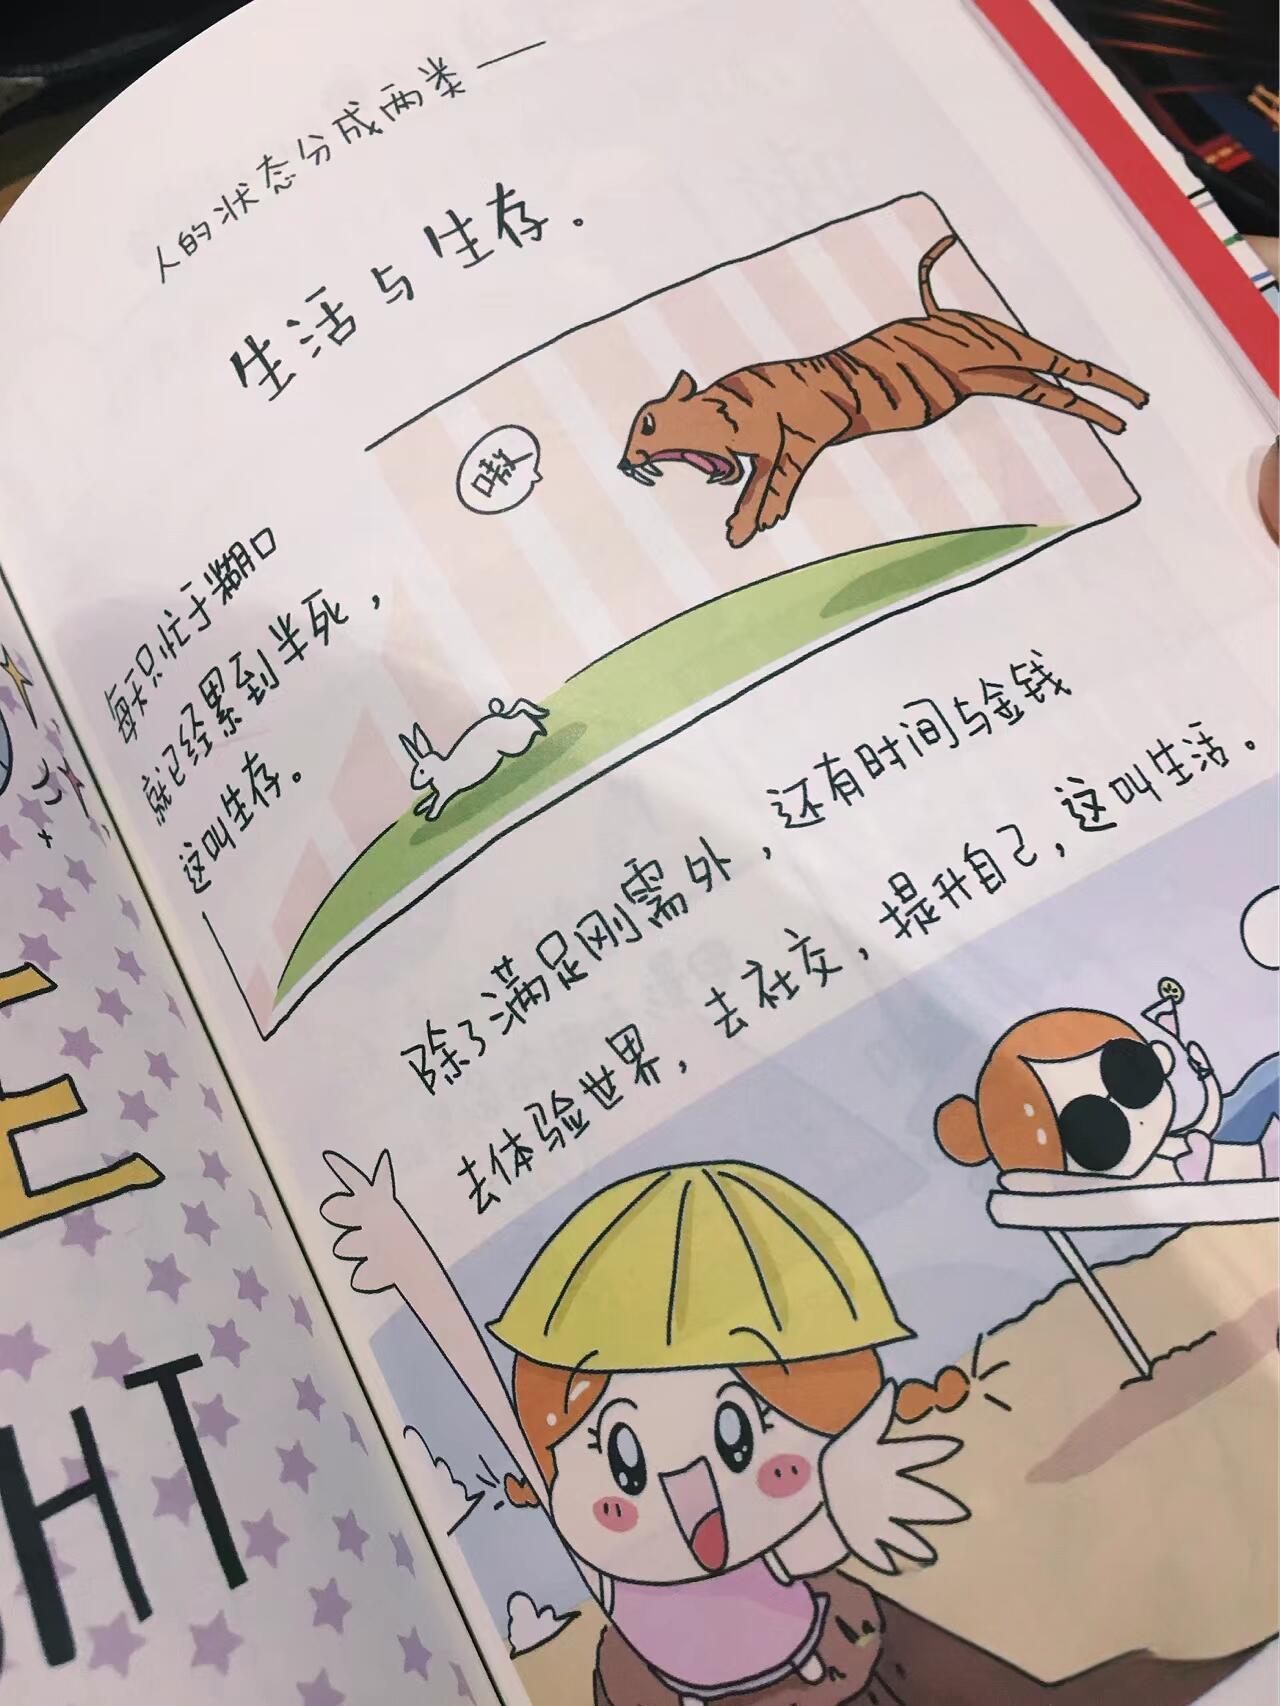 人的状态分成两类——
生活与生存.
嗷
每天只忙于糊口
就已经累到半死，
这叫生存。
除了满足刚需外，还有时间与金钱
去体验世界，去社交，提升自己，这叫生活。
E
HT